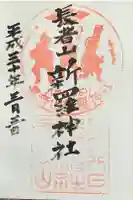 長者山新羅神社
平成三十年三月三日